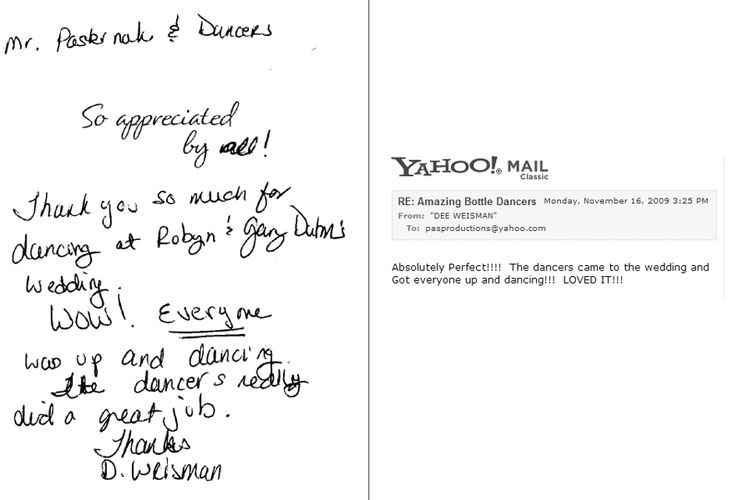 Mr. Pasternak & Dancers
So appreciated
by all!
Thank you so much for
dancing at Robyn & Gary
wedding.
Wow! Everyone
was up and dancing.
The dancers really
did a great job.
Thanks
D. Weisman
YAHOO! MAIL
Classic
RE: Amazing Bottle Dancers Monday, November 16, 2009 3:25 PM
From: "DEE WEISMAN"
To: pasproductions@yahoo.com
Absolutely Perfect!!!! The dancers came to the wedding and
Got everyone up and dancing!!! LOVED IT!!!